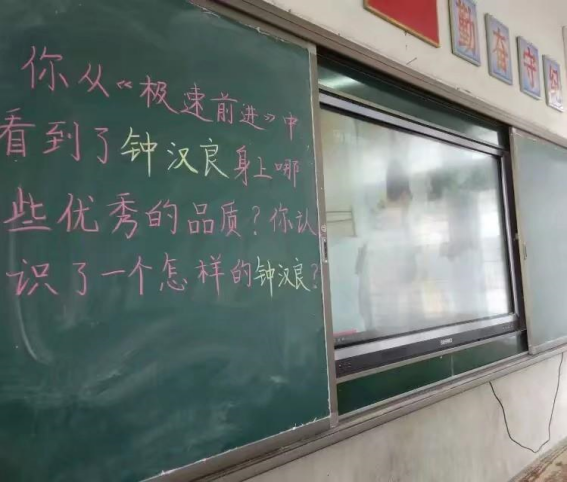 你从《极速前进》中
看到了钟汉良身上哪
些优秀的品质？你认
识了一个怎样的钟汉良？
勤奋守纪